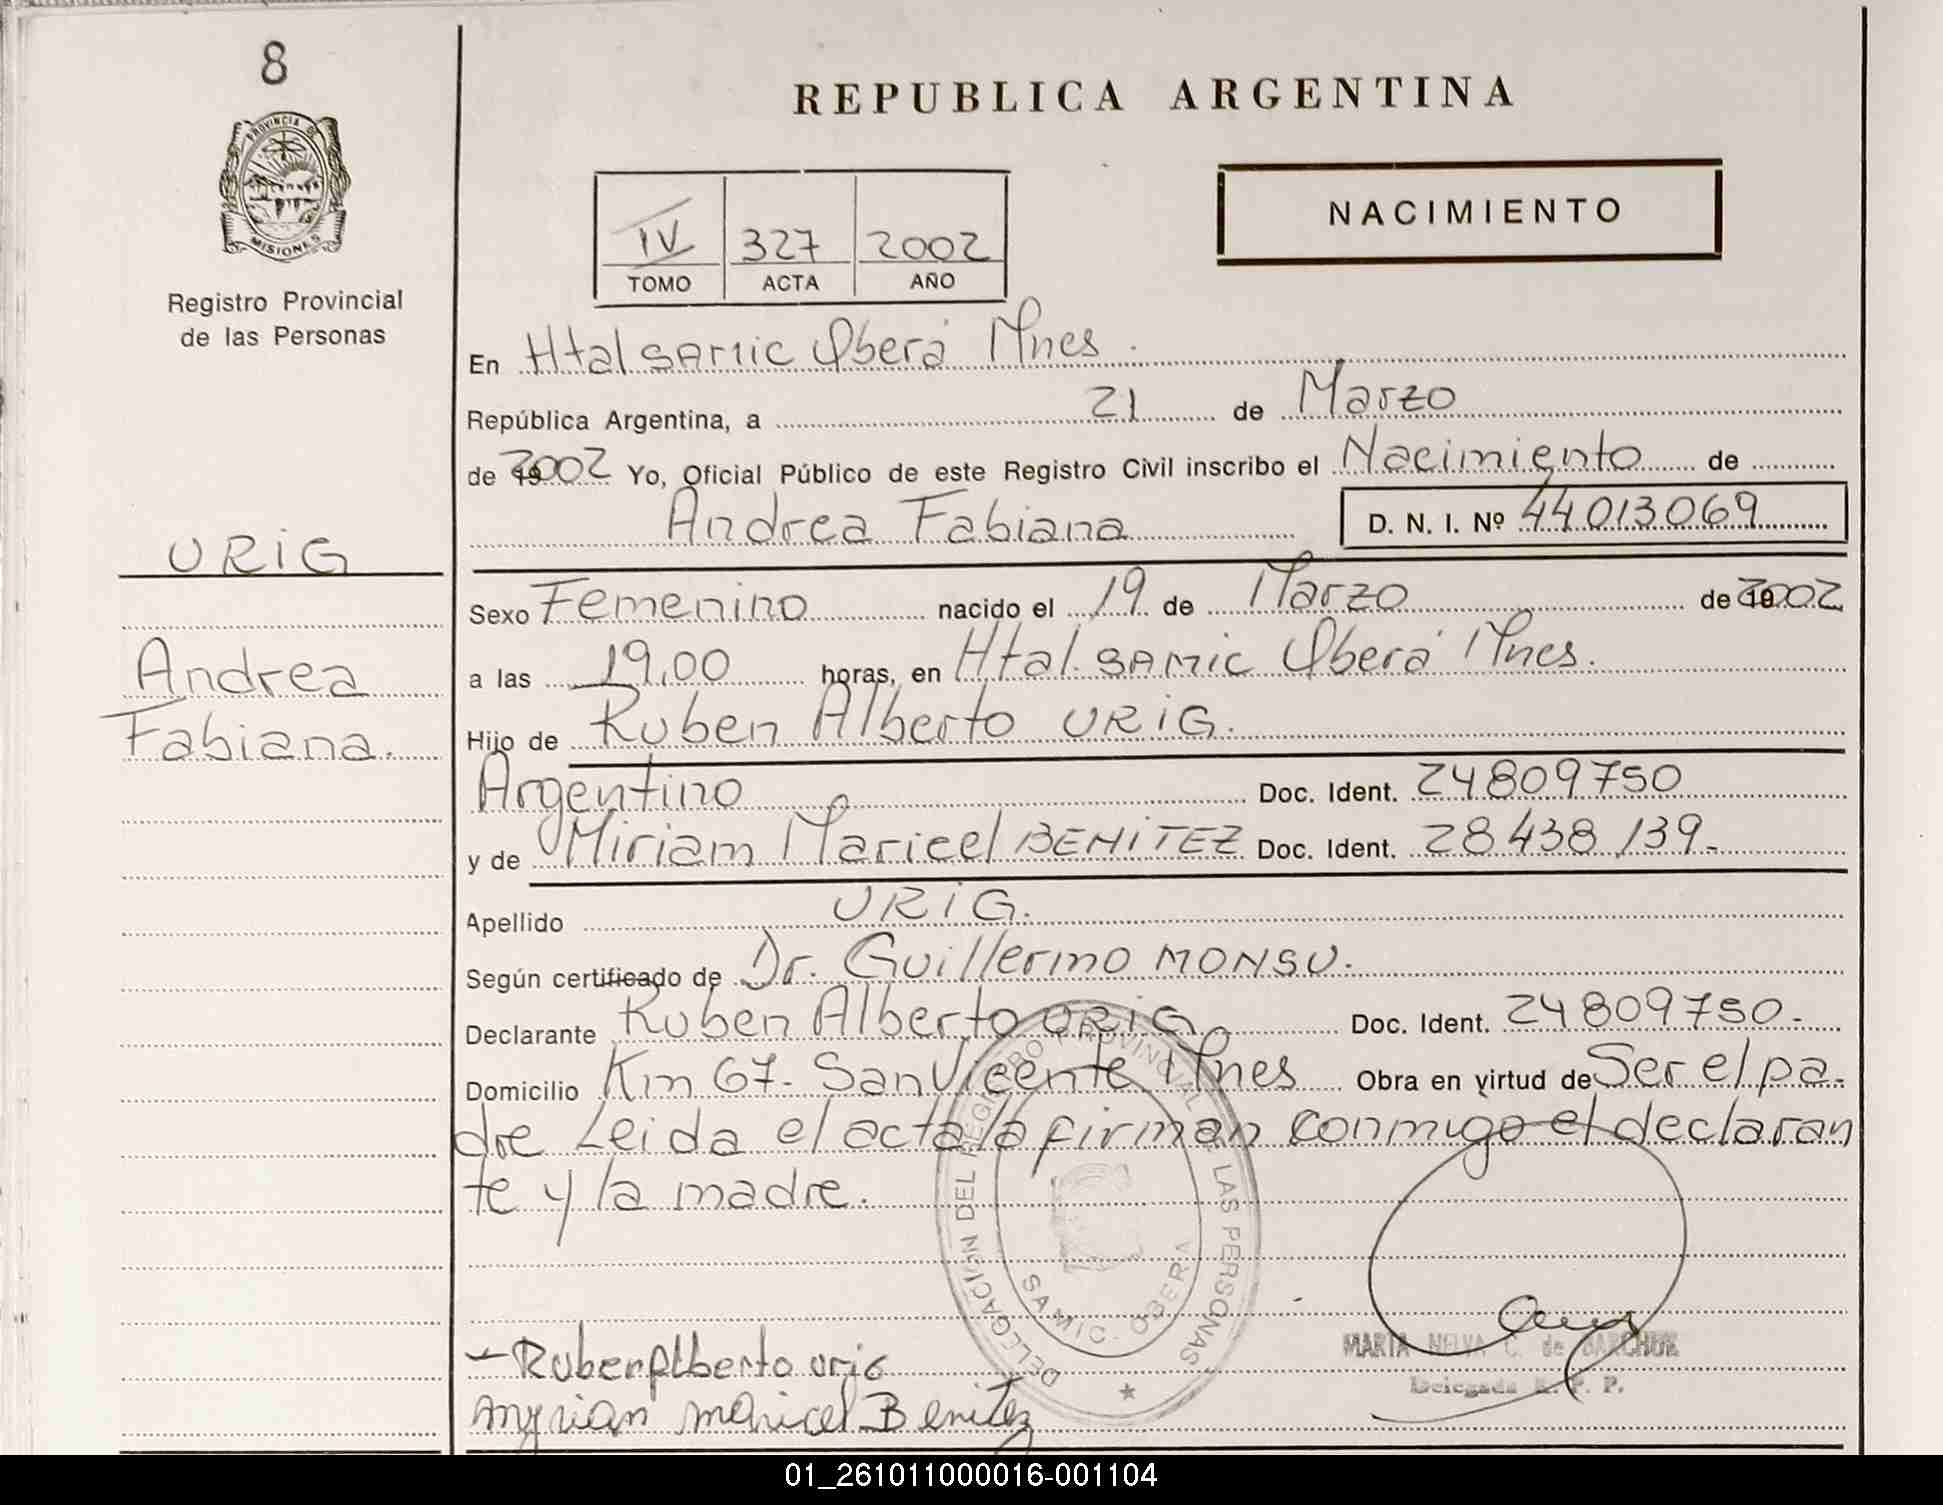 8
PROVINCIA DE
MISIONES
Registro Provincial
de las Personas
URIG
Andrea
Fabiana.
REPUBLICA ARGENTINA
NACIMIENTO
IV 327 2002
TOMO ACTA AÑO
En Htal SAMIC Oberá Mnes.
República Argentina, a 21 de Marzo
de 2002 Yo, Oficial Público de este Registro Civil inscribo el Nacimiento de
Andrea Fabiana D. N. I. Nº 44013069
Sexo Femenino nacido el 19 de Marzo de 2002
a las 19,00 horas, en Htal. SAMIC Oberá Mnes.
Hijo de Ruben Alberto URIG.
Argentino Doc. Ident. 24809750
y de Miriam Maricel BENITEZ Doc. Ident. 28438139.-
Apellido URIG.
Según certificado de Dr. Guillermo MONSU.
Declarante Ruben Alberto URIG Doc. Ident. 24809750.-
Domicilio Km 67- San Vicente Mnes Obra en virtud de Ser el pa-
dre Leida el acta la firman conmigo el declaran
te y la madre.
DELEGACION DEL REGISTRO PROVINCIAL DE LAS PERSONAS
SAMIC. OBERA
MARIA NELVA C. de BARCHUK
Delegada R. P. P.
Ruben Alberto Urig
Maricel Benitez
01_261011000016-001104